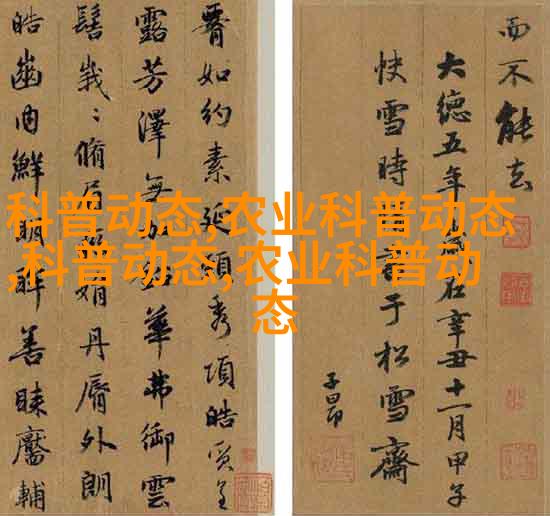 科普动态,农业科普动态
,科普动态,农业科普动
态
而不能去
大德五年歲在辛丑十一月甲子
快雪時晴書于松雪齋
子昂
如約素延頸秀項皓質呈
露芳澤無加鉛華弗御雲
髻峩〻脩眉聯娟丹脣外朗
皓齒内鮮明眸善睞靨輔